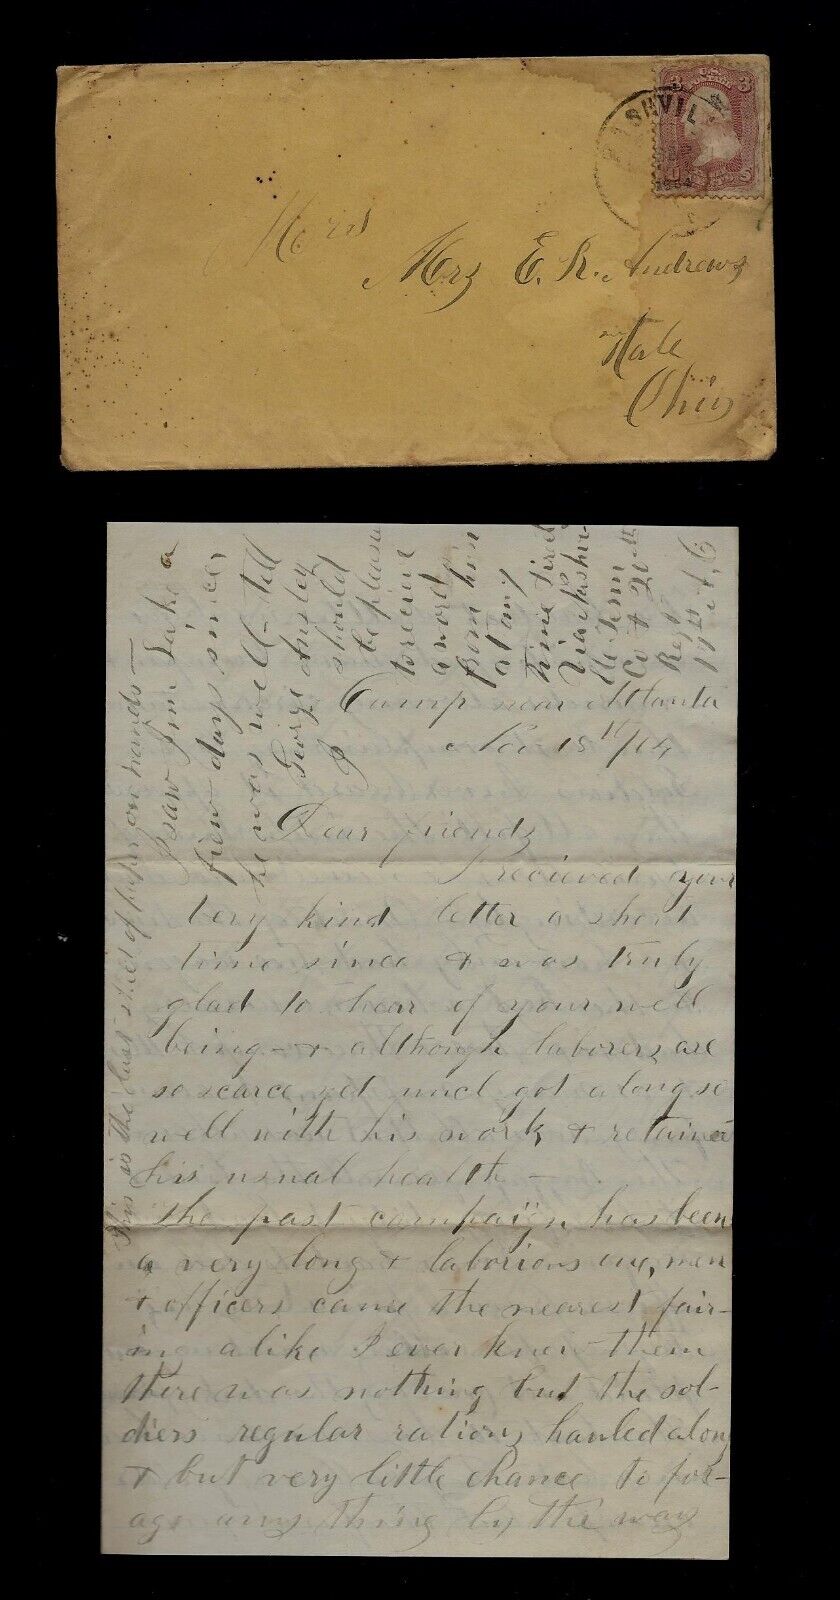 NASHVIL
3 U.S. 3
Mrs
Mrs E. R. Andrews
Ohio
This is the last sheet of paper on hands —
I saw Jim Lake a
few days since,
he was well — tell
George Ansley
I should
be please
to recieve
a word
from him
at any
time Direct
Via Nashvi-
lle Tenn
Co 20th
Regt
17th A, C
Camp near Atlanta
Nov 18th/64
Dear friends
I recieved your
very kind letter a short
time since & was truly
glad to hear of your well
being — & although laborers are
so scarce yet uncl got along so
well with his work & retained
his usual health —
The past campaign has been
a very long & laborious one, men
& officers came the nearest fair-
ing alike I ever knew them
there was nothing but the sol-
diers regular rations hauled along
& but very little chance to for-
age any thing by the way